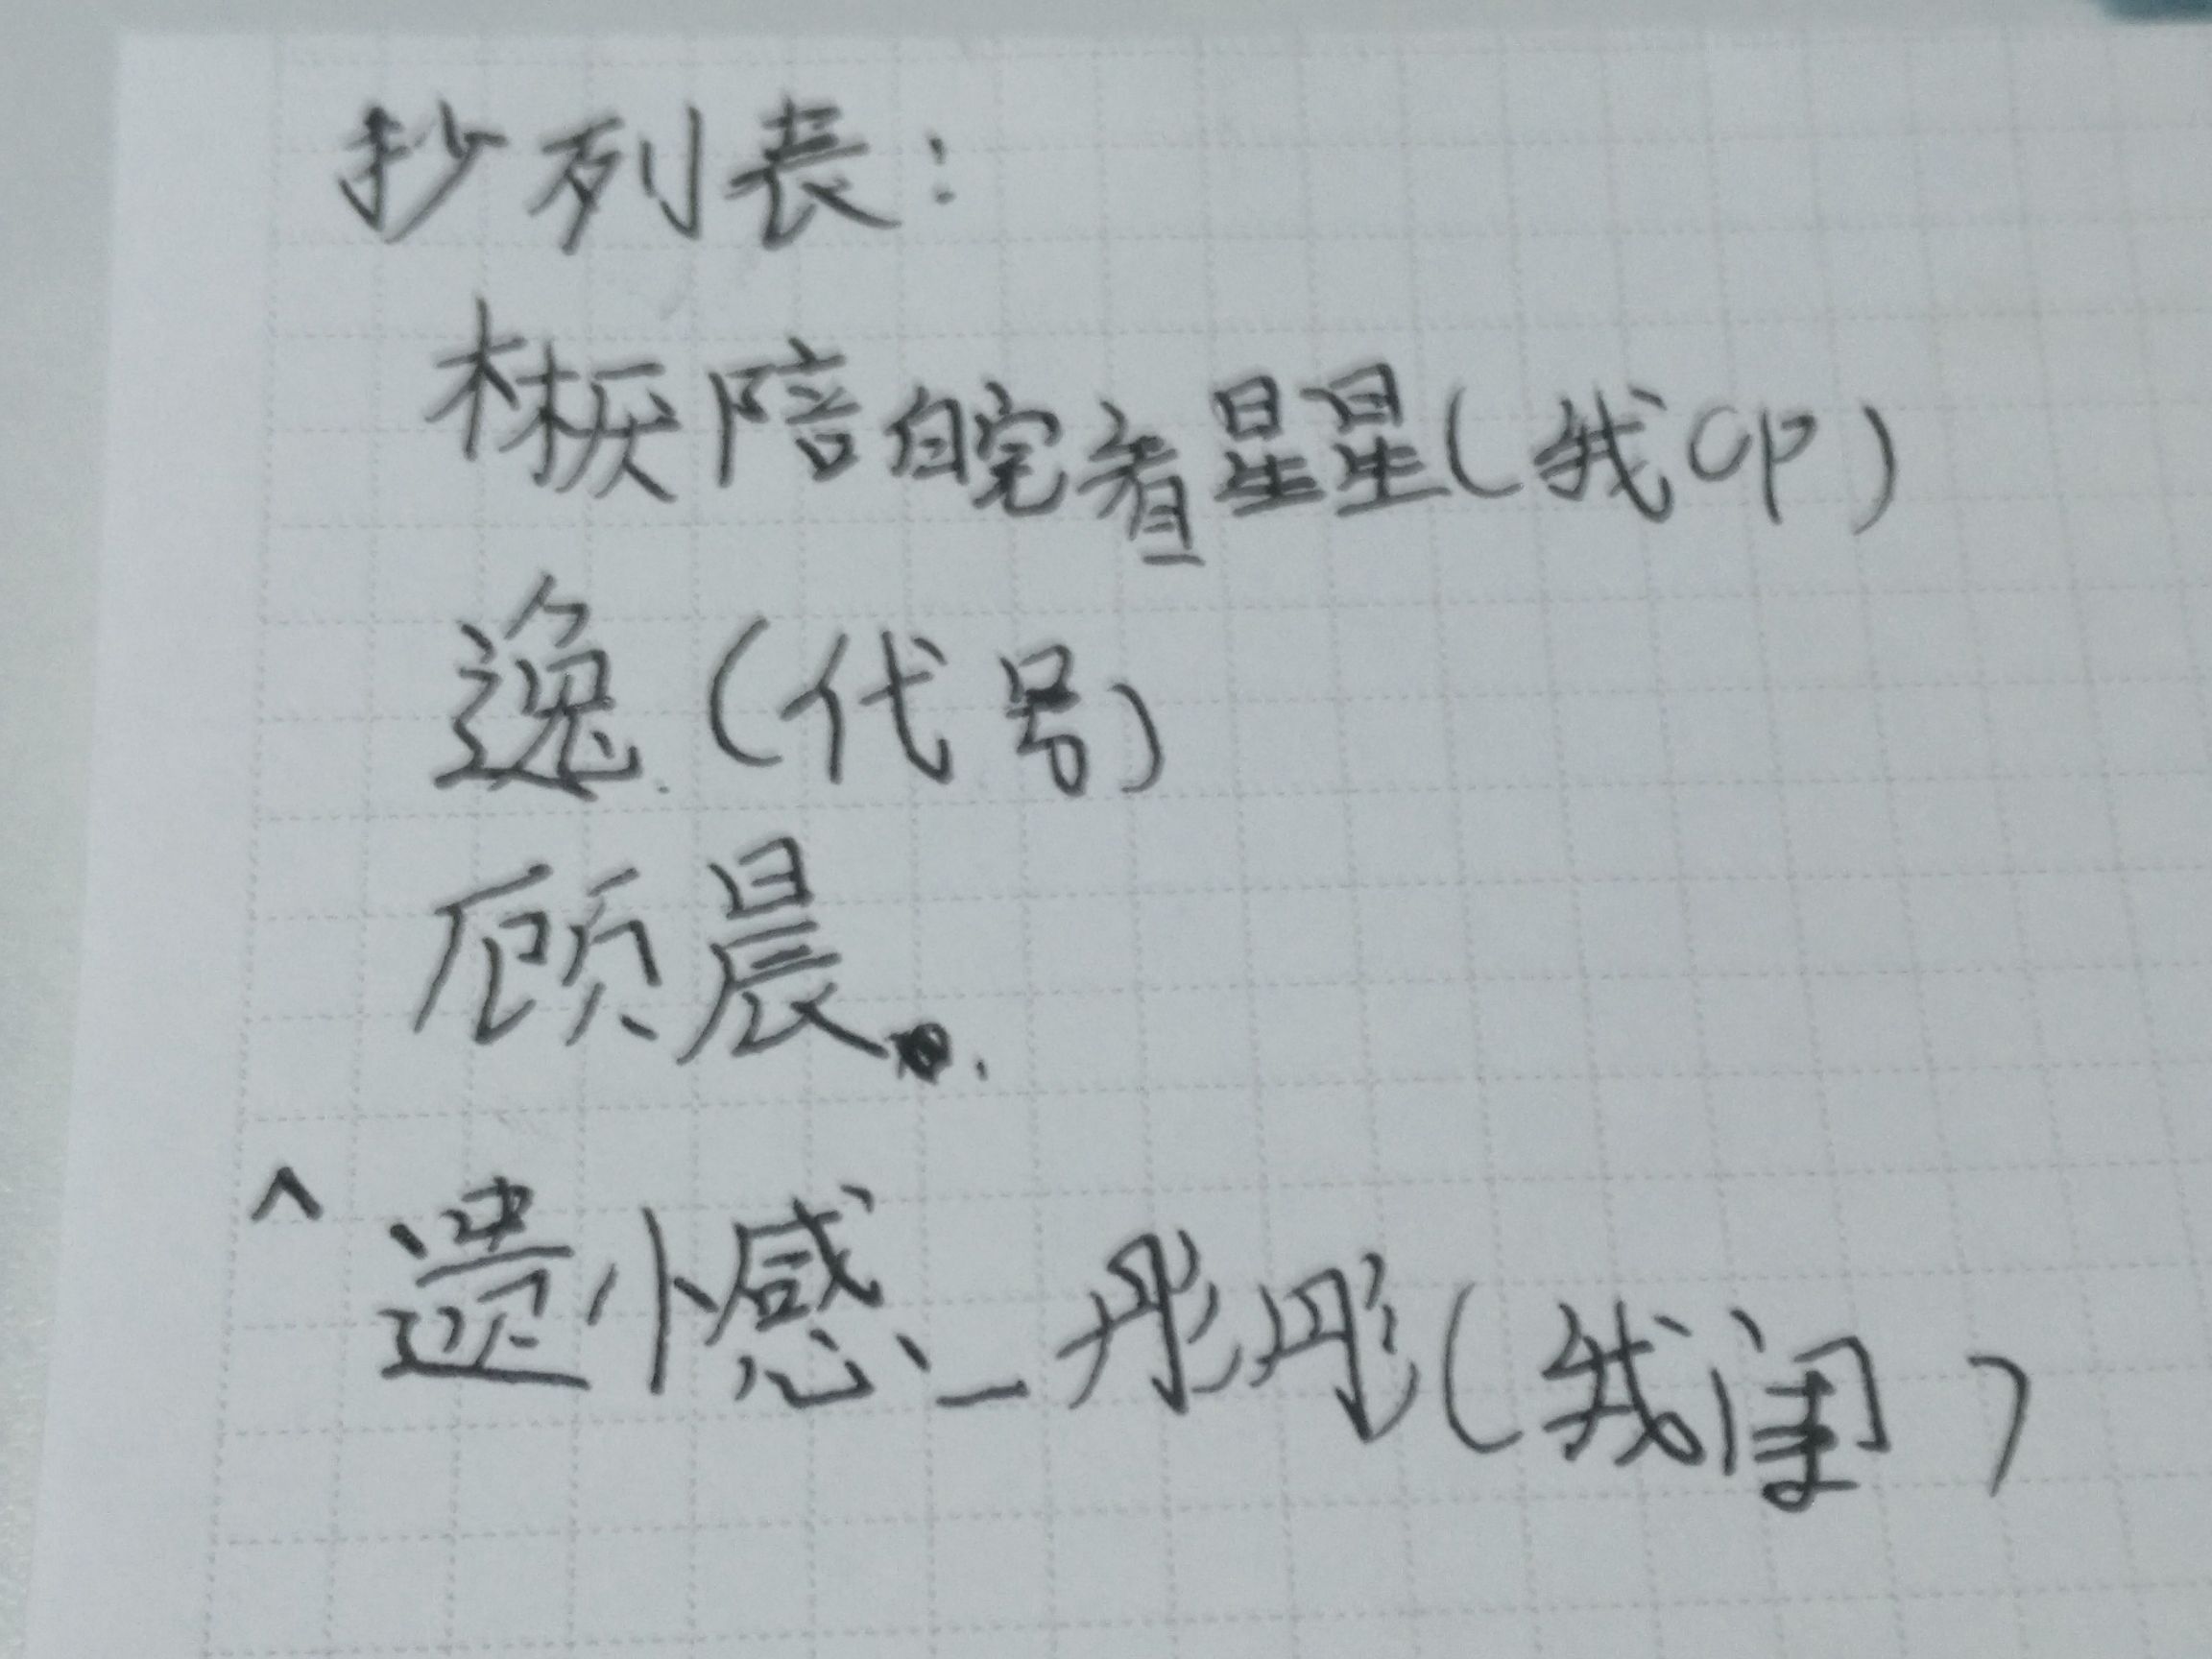 抄列表：
陪皖看星星（我CP）
逸.（代号）
顾晨。.
^遗憾_彤彤（我闺）